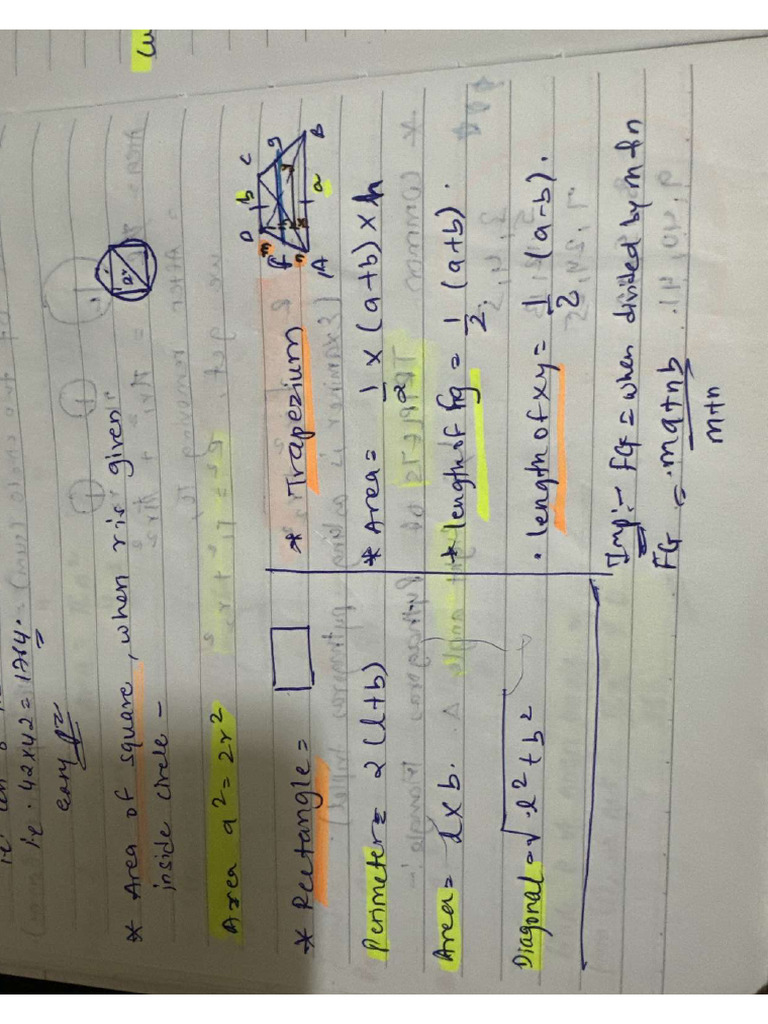 i.e. 42x42 = 1764.
easy
* Area of square, when r is given
inside circle -
Area a² = 2r²
* Rectangle =
Perimeter = 2(l+b)
Area = l x b.
Diagonal = √l² + b²
* Trapezium
D b C
m
f g
n x y
A a B
* Area = 1/2 x (a+b) x h
* length of fg = 1/2 (a+b).
. length of xy = 1/2 (a-b).
Imp:- FG = when divided by m & n
FG = ma+nb/m+n